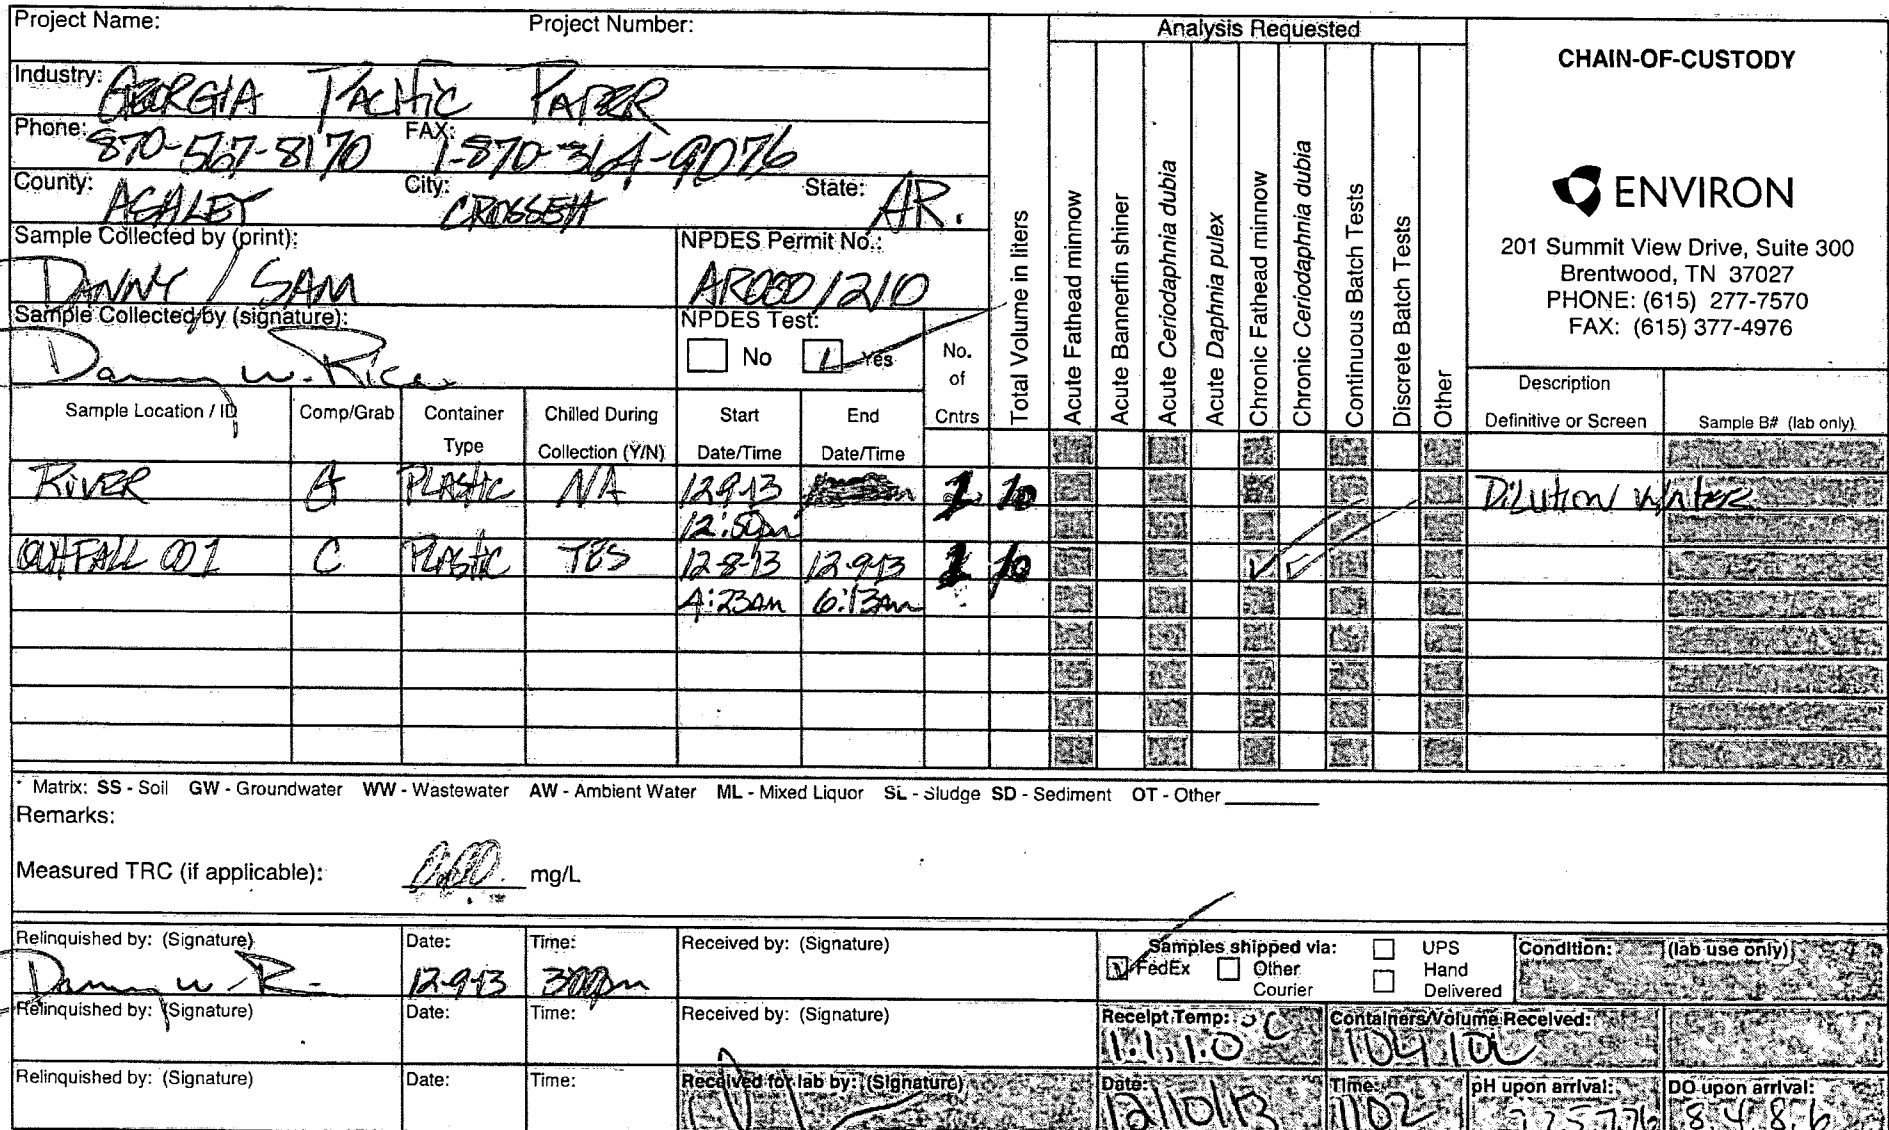 Project Name: Project Number:
Industry: GEORGIA PACIFIC PAPER
Phone: 870-567-8170 FAX: 1-870-364-9076
County: ASHLEY City: CROSSETT State: AR.
Sample Collected by (print): NPDES Permit No.:
DANNY / SAM AR0001210
Sample Collected by (signature): NPDES Test:
Danny W. Rice No Yes
Analysis Requested
Total Volume in liters
Acute Fathead minnow
Acute Bannerfin shiner
Acute Ceriodaphnia dubia
Acute Daphnia pulex
Chronic Fathead minnow
Chronic Ceriodaphnia dubia
Continuous Batch Tests
Discrete Batch Tests
Other
CHAIN-OF-CUSTODY
ENVIRON
201 Summit View Drive, Suite 300
Brentwood, TN 37027
PHONE: (615) 277-7570
FAX: (615) 377-4976
Sample Location / ID Comp/Grab Container Type Chilled During Collection (Y/N) Start Date/Time End Date/Time No. of Cntrs Description Definitive or Screen Sample B# (lab only)
RIVER G PLASTIC NA 12-9-13 1 10 DILUTION WATER
12:50pm
OUTFALL 001 C PLASTIC YES 12-8-13 12-9-13 1 10
4:23AM 6:13AM
* Matrix: SS - Soil GW - Groundwater WW - Wastewater AW - Ambient Water ML - Mixed Liquor SL - Sludge SD - Sediment OT - Other
Remarks:
Measured TRC (if applicable): mg/L
Relinquished by: (Signature) Date: Time: Received by: (Signature)
Danny W. R 12-9-13 3:00pm
Samples shipped via: UPS
FedEx Other Courier Hand Delivered
Condition: (lab use only)
Relinquished by: (Signature) Date: Time: Received by: (Signature)
Receipt Temp: °C Containers/Volume Received:
1.1, 1.0
Relinquished by: (Signature) Date: Time: Received for lab by: (Signature)
Date: Time: pH upon arrival: DO upon arrival:
12/10/13 1102 8.4, 8.6